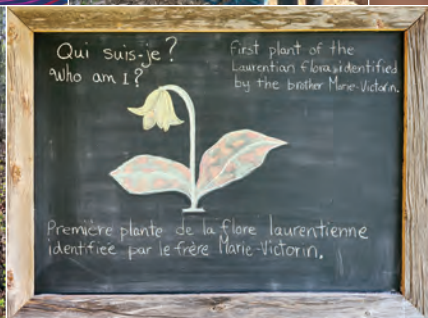 Qui suis-je?
Who am I?
First plant of the
Laurentian flora identified
by the brother Marie-Victorin.
Première plante de la flore laurentienne
identifiée par le frère Marie-Victorin.